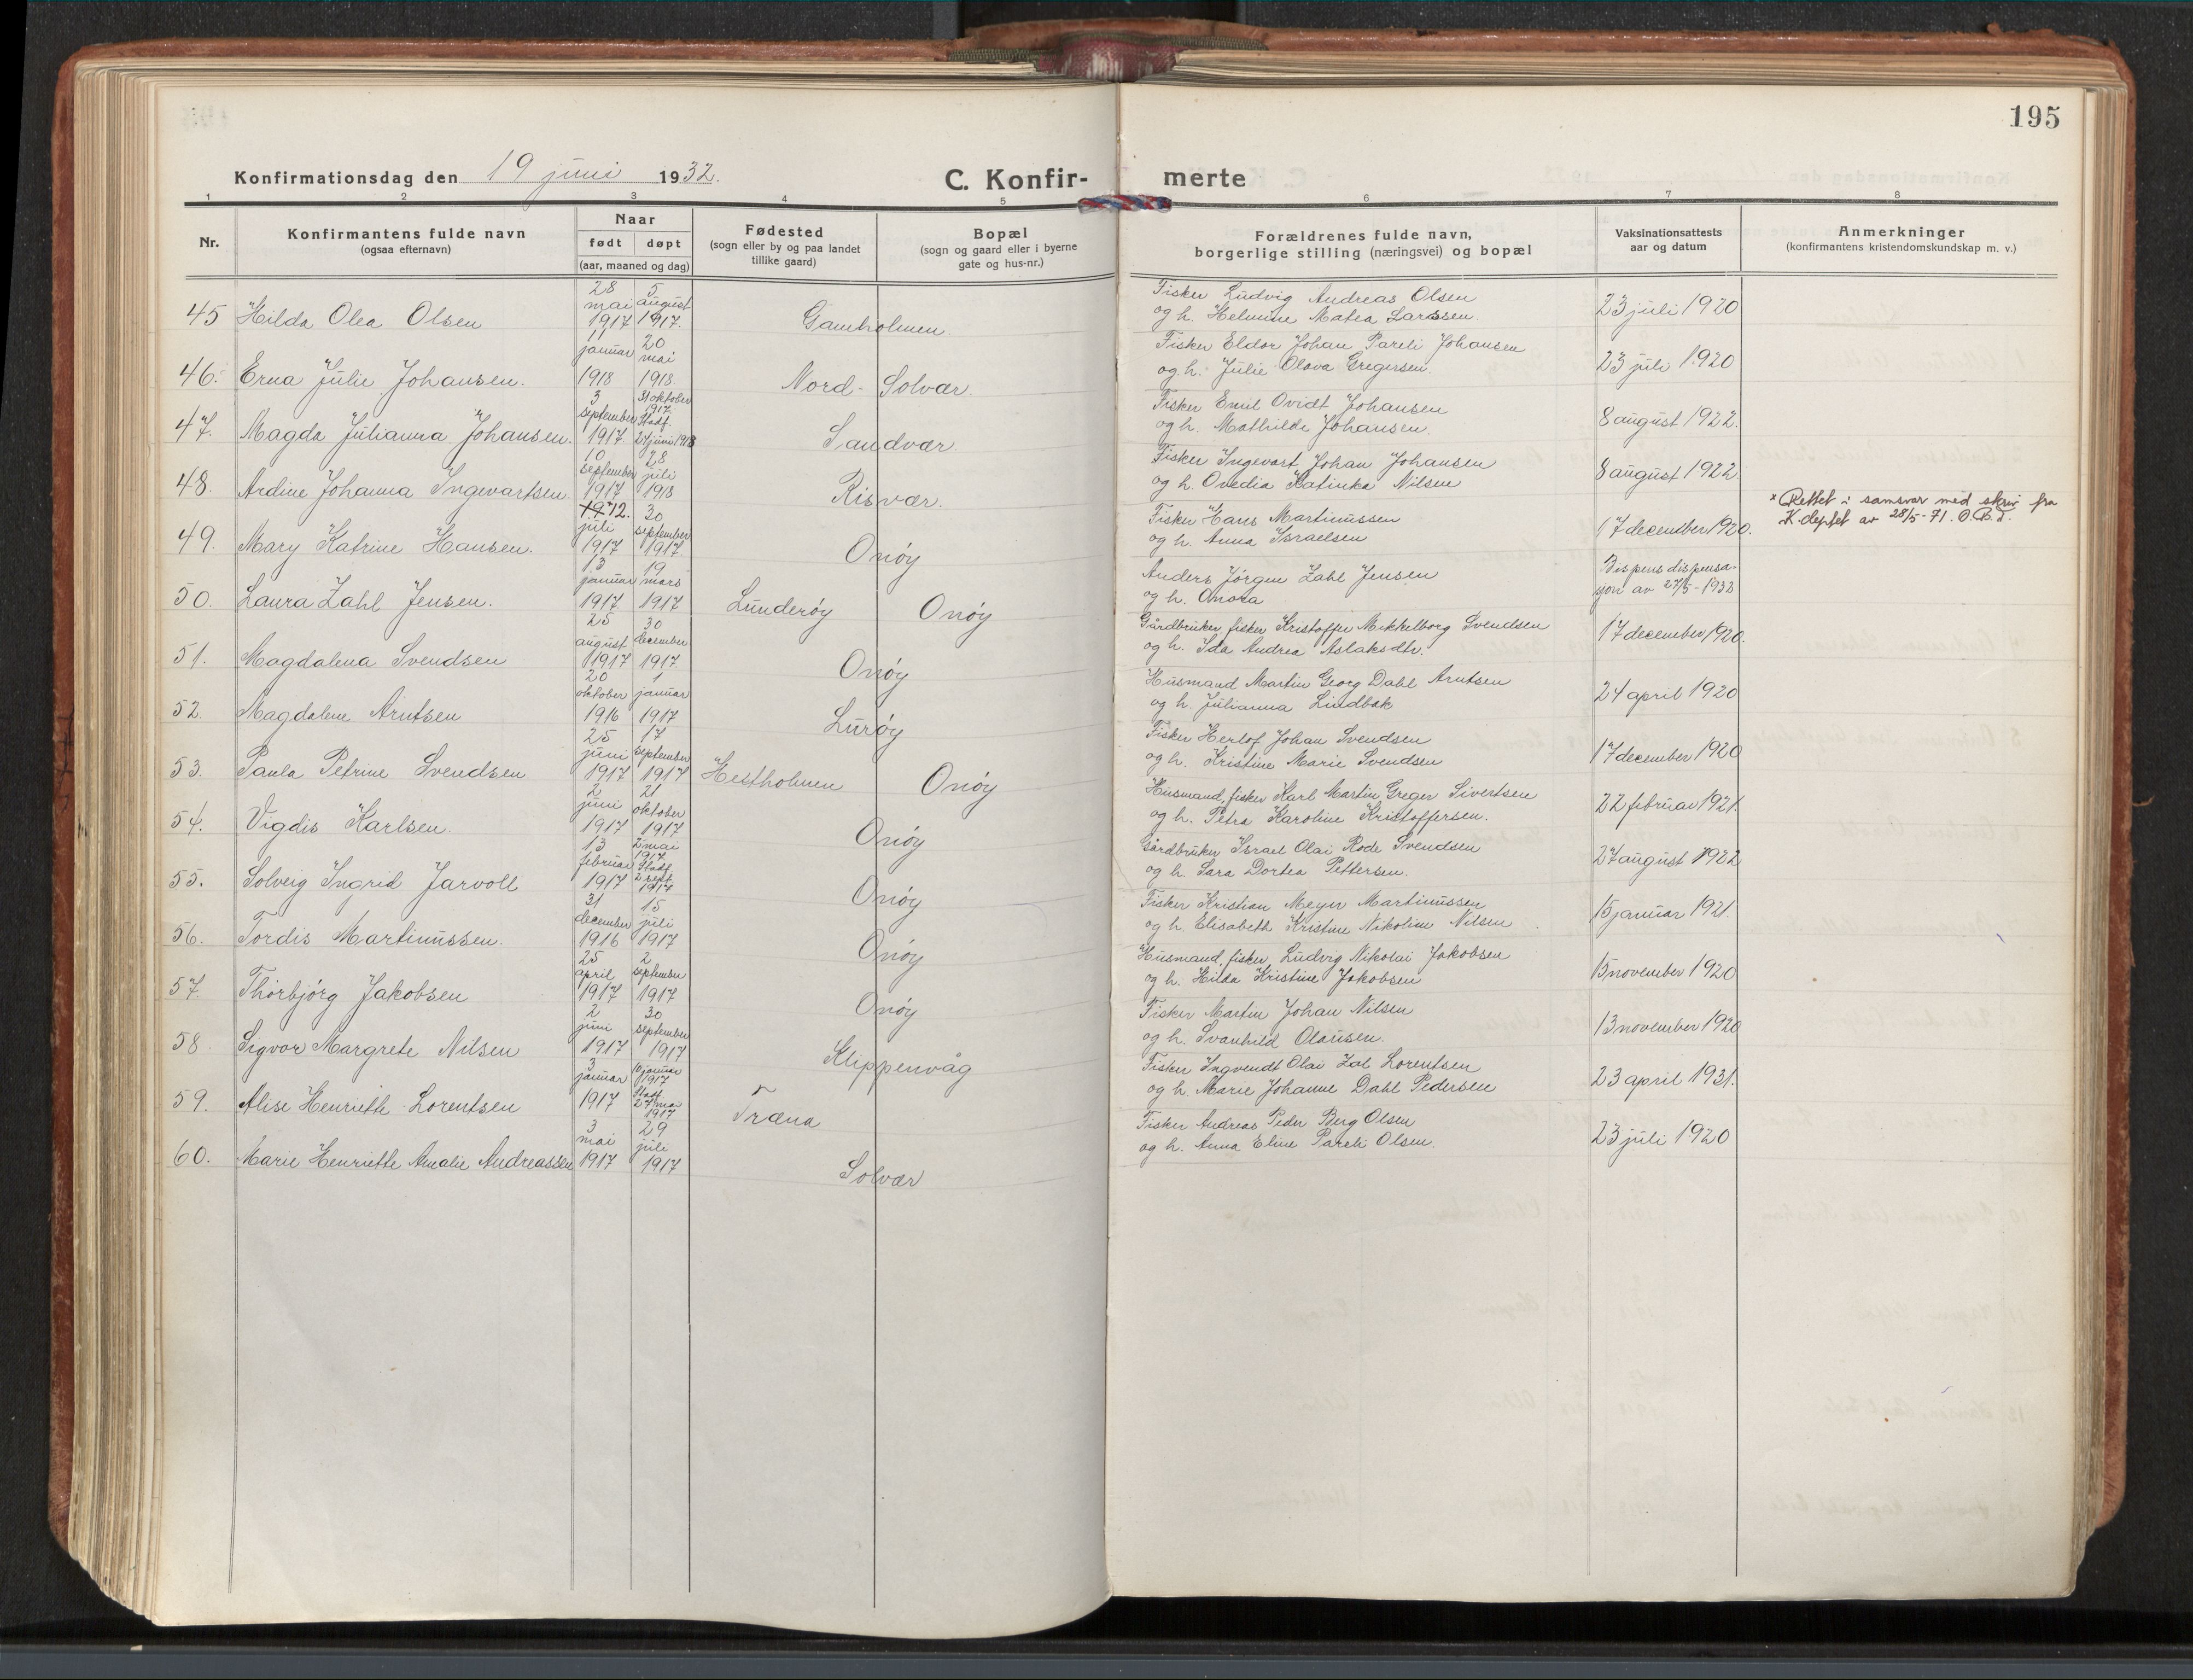 195
Konfirmationsdag den 19 juni 1932.
C. Konfirmerte
1 2 3 4 5 6 7 8
Nr.
Konfirmantens fulde navn
(ogsaa efternavn)
Naar
født døpt
(aar, maaned og dag)
Fødested
(sogn eller by og paa landet
tillike gaard)
Bopæl
(sogn og gaard eller i byerne
gate og hus-nr.)
Forældrenes fulde navn,
borgerlige stilling (næringsvei) og bopæl
Vaksinationsattests
aar og datum
Anmerkninger
(konfirmantens kristendomskundskap m. v.)
45 Hilda Olea Olsen 28 mai 1917 5 august 1917. Gamholmen.
Fisker Ludvig Andreas Olsen
og h. Helmine Matea Larssen. 23 juli 1920
46. Erna Julie Johansen. 11 januar 1918 20 mai 1918. Nord-Solvær.
Fisker Eldor Johan Pareli Johansen
og h. Julie Olava Gregersen. 23 juli 1920
47. Magda Julianna Johansen. 3 september 1917 31 oktober 1917. Stadf. 24 juni 1918 Sandvær.
Fisker Emil Ovidt Johansen
og h. Mathilde Johansen. 8 august 1922.
48. Ardine Johanna Ingevartsen. 10 september 1917 28 juli 1918 Risvær.
Fisker Ingevart Johan Johansen
og h. Ovedia Katinka Nilsen 8 august 1922
49. Mary Katrine Hansen. 12. juli 1917 30 september 1917 Onøy
Fisker Hans Martinussen
og h. Anna Israelsen 17 december 1920.
* Rettet i samsvar med skriv fra
K-deptet av 28/5-71. O.B.J.
50. Laura Zahl Jensen. 13 januar 1917 19 mars 1917 Lunderøy Onøy
Anders Jørgen Zahl Jensen
og h. Onora
Bispens dispensa-
sjon av 27/5-1932
51. Magdalena Svendsen 25 august 1917 30 december 1917. Onøy
Gårdbruker, fisker Kristoffer Mekkelborg Svendsen
og h. Ida Andrea Aslaksdtr. 17 december 1920.
52. Magdalene Arntsen 20 oktober 1916 1 januar 1917 Lurøy
Husmand Martin Georg Dahl Arntsen
og h. Julianna Lindbak 24 april 1920
53. Paula Petrine Svendsen 25 juni 1917 17 september 1917 Hestholmen Onøy
Fisker Herlof Johan Svendsen
og h. Kristine Marie Svendsen 17 december 1920
54. Vigdis Karlsen. 2 juni 1917 21 oktober 1917 Onøy
Husmand, fisker Karl Martin Greger Sivertsen
og h. Petra Karoline Kristoffersen. 22 februar 1921.
55. Solveig Ingrid Jarvoll 13 februar 1917 2 mai 1917 Stadf. 2 sept. 1917 Onøy
Gårdbruker Israel Olai Rode Svendsen
og h. Sara Dortea Pettersen. 27 august 1922
56. Tordis Martinussen. 31 december 1916 15 juli 1917 Onøy
Fisker Kristian Meyer Martinussen
og h. Elisabeth Kristine Nikoline Nilsen 15 januar 1921.
57. Thorbjørg Jakobsen 25 april 1917 2 september 1917 Onøy
Husmand, fisker Ludvig Nikolai Jakobsen
og h. Hilda Kristine Jakobsen 15 november 1920
58. Sigvor Margrete Nilsen 2 juni 1917 30 september 1917 Klippenvåg
Fisker Martin Johan Nilsen
og h. Svanhild Olausen. 13 november 1920
59. Alise Henriette Lorentsen 3 januar 1917 10 januar 1917 Stadf. 27 mai 1917 Træna
Fisker Ingvendt Olai Zal Lorentsen
og h. Marie Johanne Dahl Pedersen 23 april 1931.
60. Marie Henriette Amalie Andreassen 3 mai 1917 29 juli 1917 Solvær
Fisker Andreas Peder Berg Olsen
og h. Anna Eline Pareli Olsen. 23 juli 1920